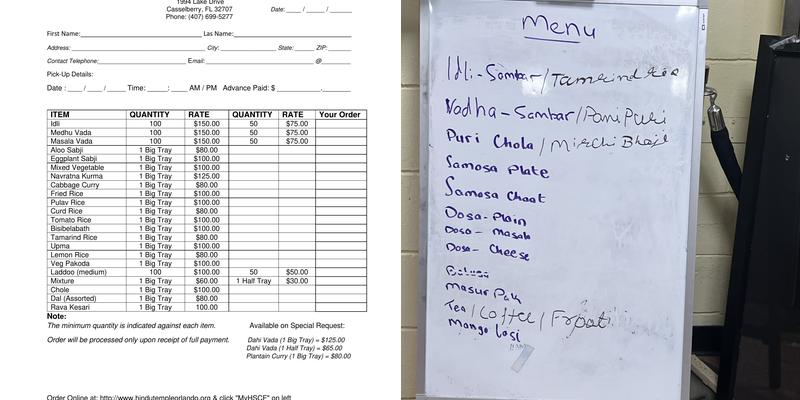 1994 Lake Drive
Casselberry, FL 32707
Phone: (407) 699-5277
Date: ____ / _____ / _____
First Name: Las Name:
Address: City: State: ZIP:
Contact Telephone: Email: @
Pick-Up Details:
Date : ____ / ____ / _____ Time: _____: ____ AM / PM Advance Paid: $ ________.______
ITEM QUANTITY RATE QUANTITY RATE Your Order
Idli 100 $150.00 50 $75.00
Medhu Vada 100 $150.00 50 $75.00
Masala Vada 100 $150.00 50 $75.00
Aloo Sabji 1 Big Tray $80.00
Eggplant Sabji 1 Big Tray $100.00
Mixed Vegetable 1 Big Tray $100.00
Navratna Kurma 1 Big Tray $125.00
Cabbage Curry 1 Big Tray $80.00
Fried Rice 1 Big Tray $100.00
Pulav Rice 1 Big Tray $100.00
Curd Rice 1 Big Tray $80.00
Tomato Rice 1 Big Tray $100.00
Bisibelabath 1 Big Tray $100.00
Tamarind Rice 1 Big Tray $80.00
Upma 1 Big Tray $100.00
Lemon Rice 1 Big Tray $80.00
Veg Pakoda 1 Big Tray $100.00
Laddoo (medium) 100 $100.00 50 $50.00
Mixture 1 Big Tray $60.00 1 Half Tray $30.00
Chole 1 Big Tray $100.00
Dal (Assorted) 1 Big Tray $80.00
Rava Kesari 1 Big Tray 100.00
Note:
The minimum quantity is indicated against each item.
Order will be processed only upon receipt of full payment.
Available on Special Request:
Dahi Vada (1 Big Tray) = $125.00
Dahi Vada (1 Half Tray) = $65.00
Plantain Curry (1 Big Tray) = $80.00
Order Online at: http://www.hindutempleorlando.org & click "MyHSCF" on left
Menu
Idli - Sambar / Tamrind Rice
Vadha - Sambar / Pani Puri
Puri Chola / Mirchi Bhaji
Samosa Plate
Samosa Chaat
Dosa - Plain
Dosa - Masala
Dosa - Cheese
Masur Pak
Tea / Coffee /
Mango Lasi